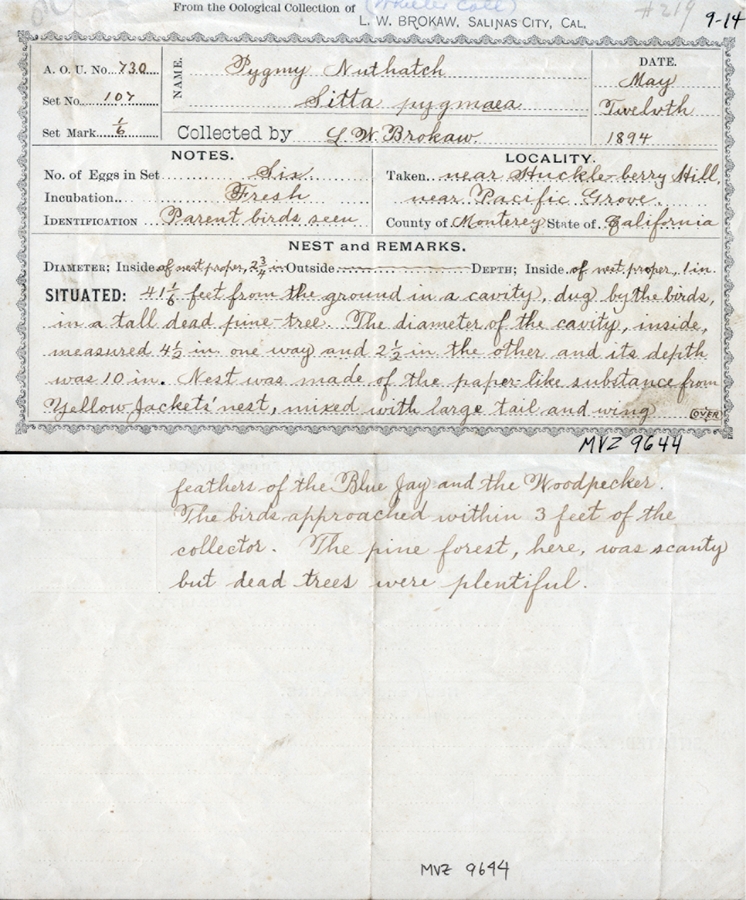 From the Oological Collection of (Wheeler Coll)
L. W. BROKAW, SALINAS CITY, CAL.
#219
9-14
A. O. U. No. 730
Set No. 107
Set Mark 1/6
NAME.
Pygmy Nuthatch
Sitta pygmaea
Collected by L. W. Brokaw.
DATE.
May
Twelvth
1894
NOTES.
No. of Eggs in Set Six.
Incubation. Fresh
IDENTIFICATION Parent birds seen
LOCALITY.
Taken near Huckle-berry Hill,
near Pacific Grove.
County of Monterey State of California
NEST and REMARKS.
DIAMETER; Inside of nest proper, 2 3/4 in Outside DEPTH; Inside of nest proper, 1 in.
SITUATED: 41 1/6 feet from the ground in a cavity, dug by the birds,
in a tall dead pine-tree. The diameter of the cavity, inside,
measured 4 1/2 in. one way and 2 1/2 in the other and its depth
was 10 in. Nest was made of the paper-like substance from
Yellow Jackets' nest, mixed with large tail and wing (OVER)
MVZ 9644
feathers of the Blue Jay and the Woodpecker.
The birds approached within 3 feet of the
collector. The pine forest, here, was scanty
but dead trees were plentiful.
MVZ 9644